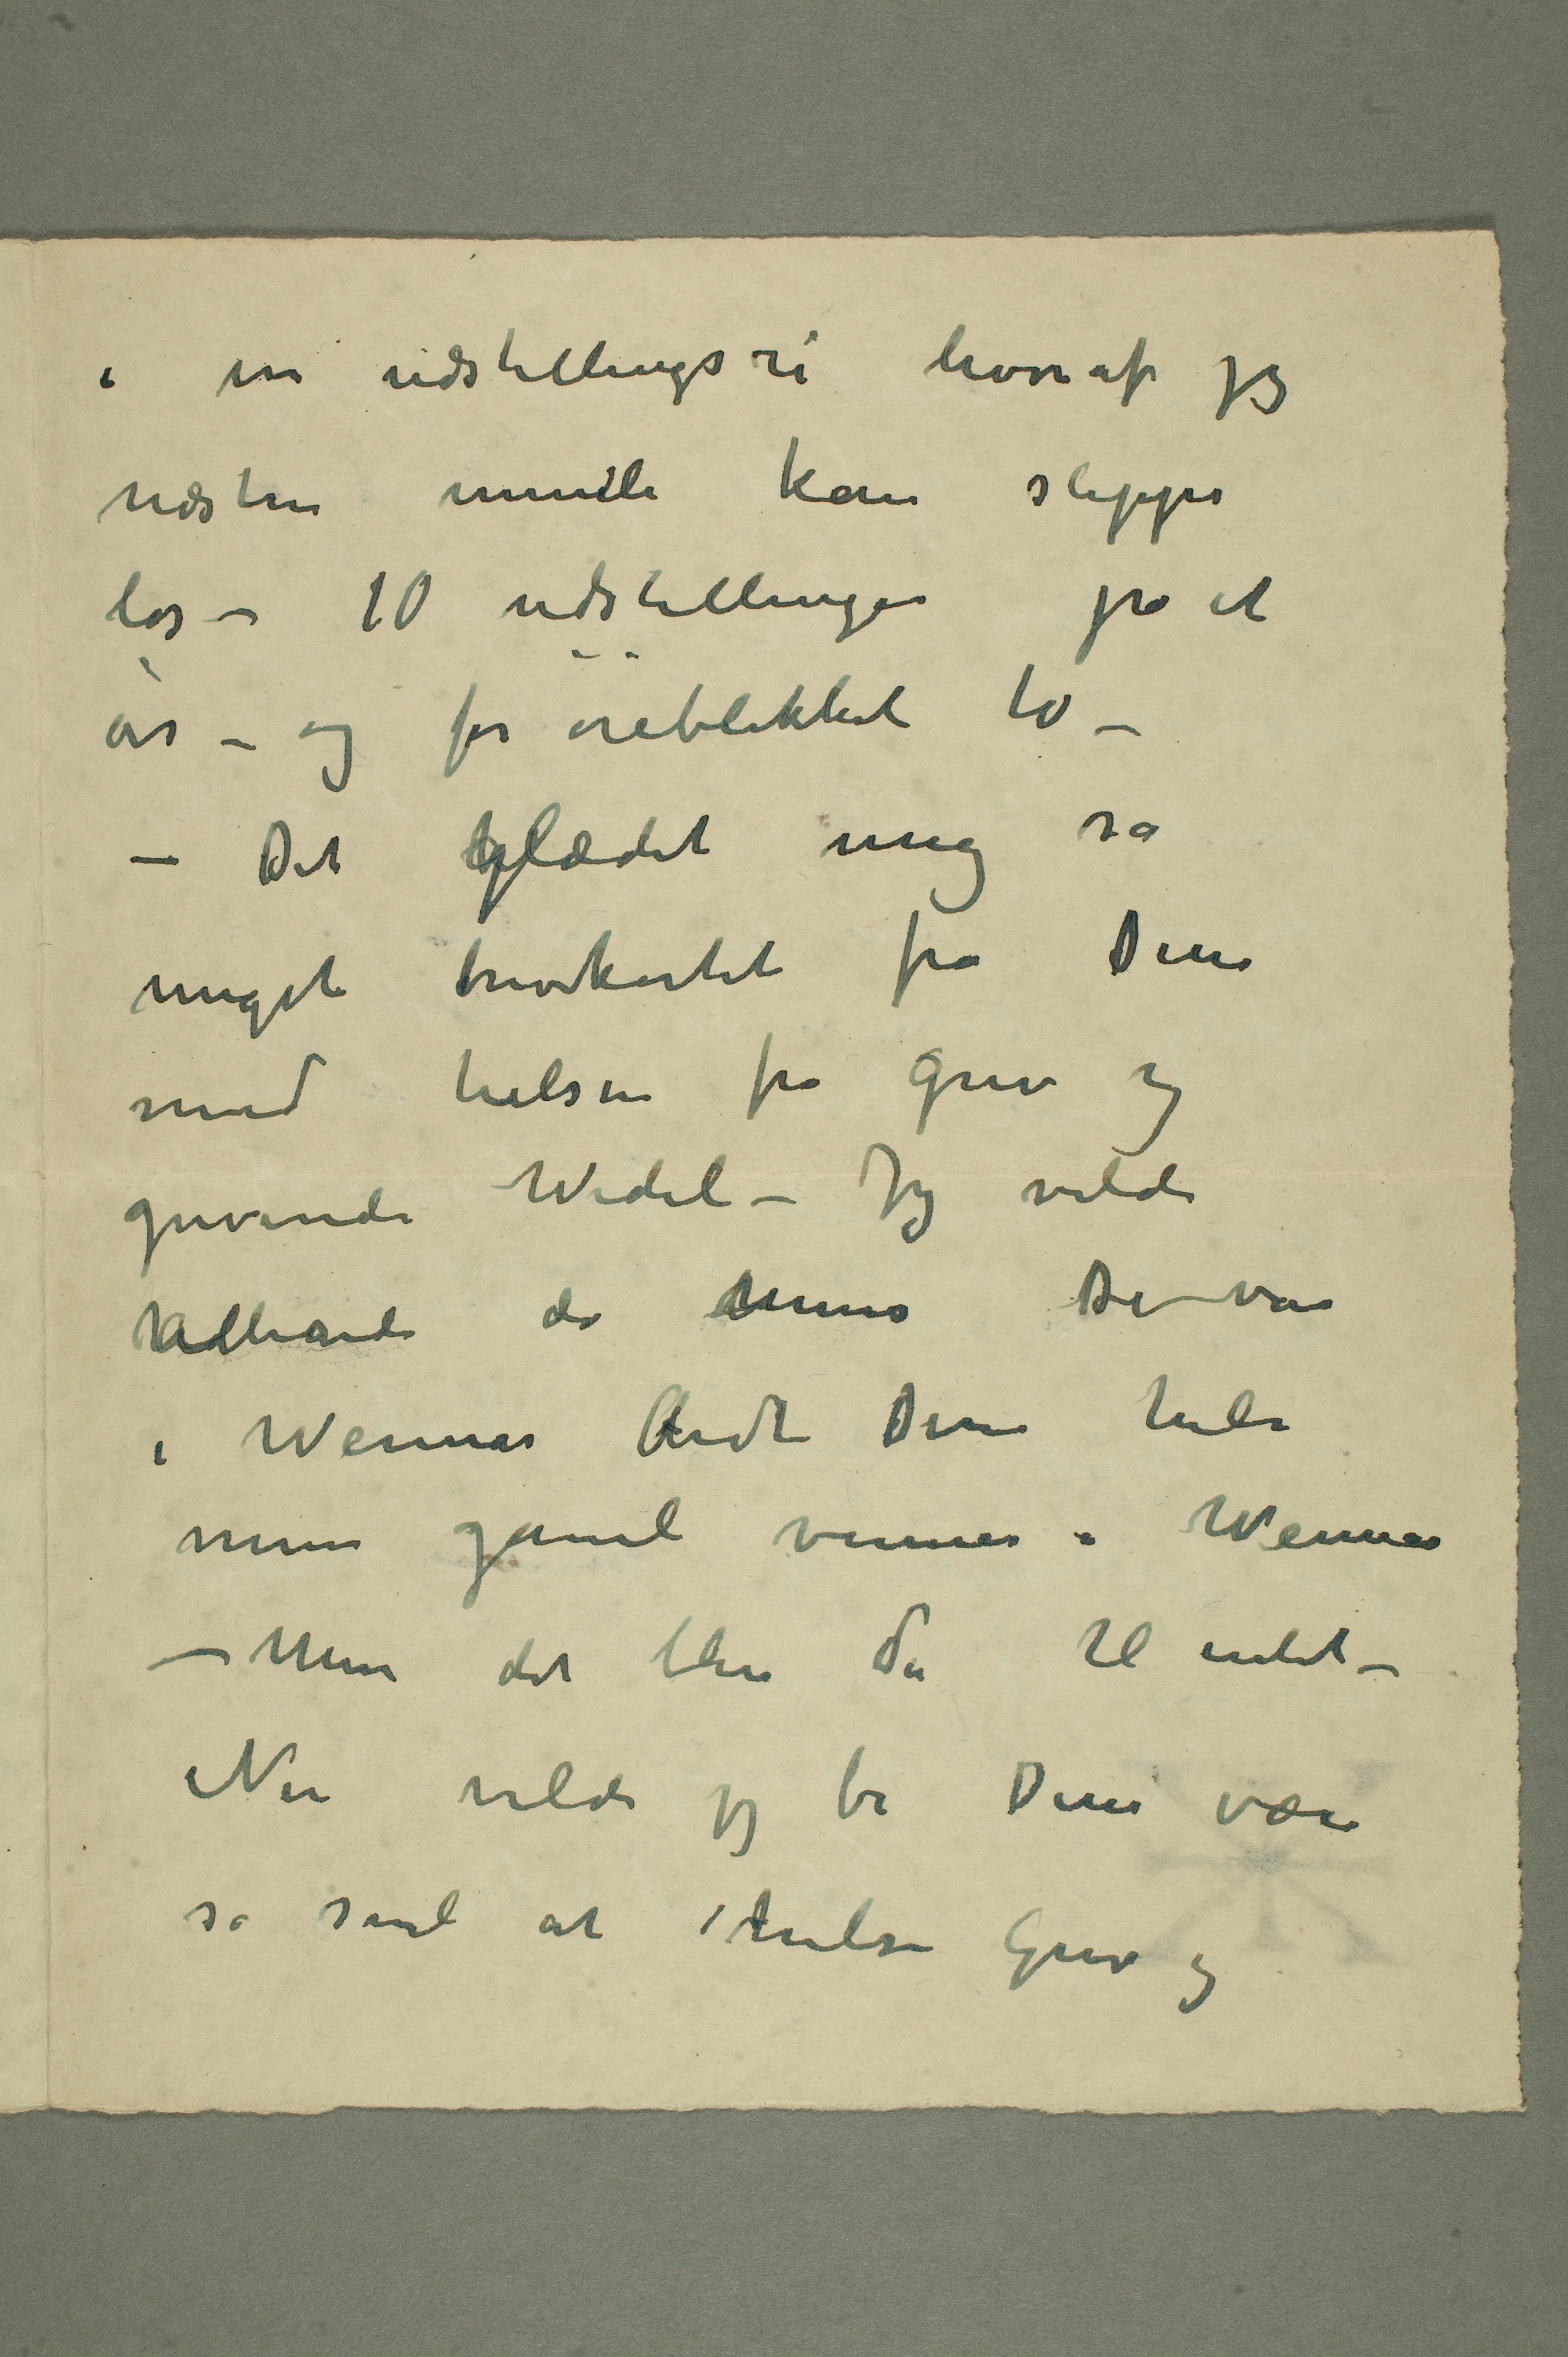 i en udstillingsri hvoraf jeg
næsten umulig kan slippe
los – 10 udstillinger på et
år – og for öieblikket to –
– Det glædet mig så
meget brevkortet fra Dem
med hilsen fra grev og
grevinde Wedel – Jeg vilde
allerede da De var
i Weimar bedt Dem hilse
mine gamle venner i Weimar
– Men det blev da til intet –
Nu vilde jeg be Dem være
så snil at hilse Grev og